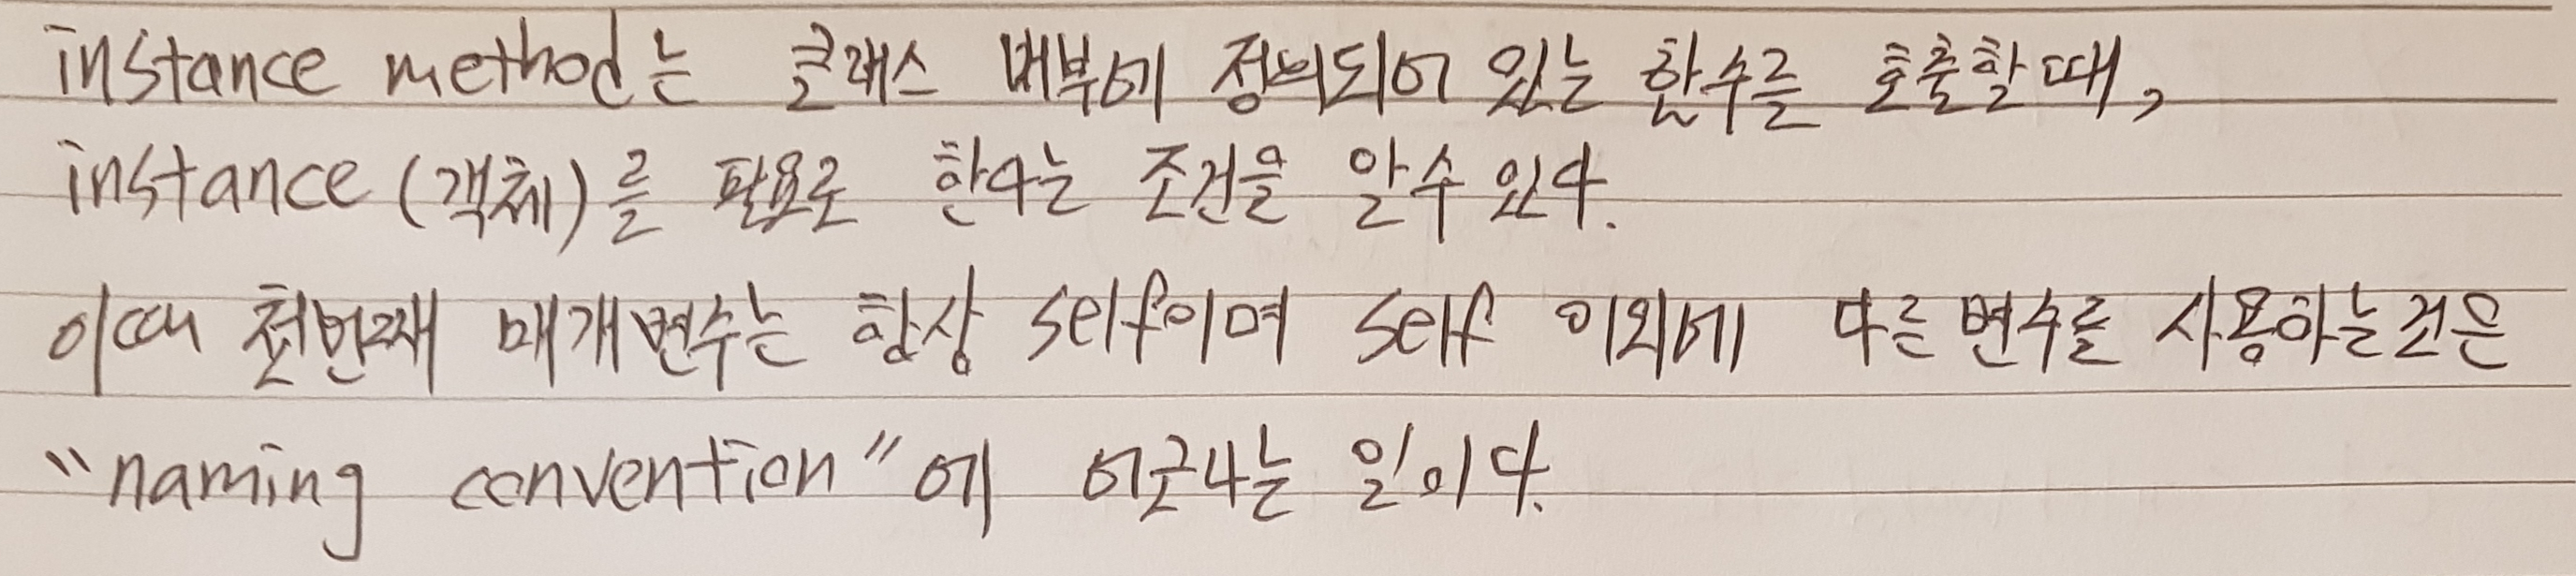 instance method는 클래스 내부에 정의되어 있는 함수를 호출할때,
instance (객체)를 필요로 한다는 조건을 알수 있다.
이때 첫번째 매개변수는 항상 self이며 self 이외에 다른변수를 사용하는것은
"naming convention"에 어긋나는 일이다.